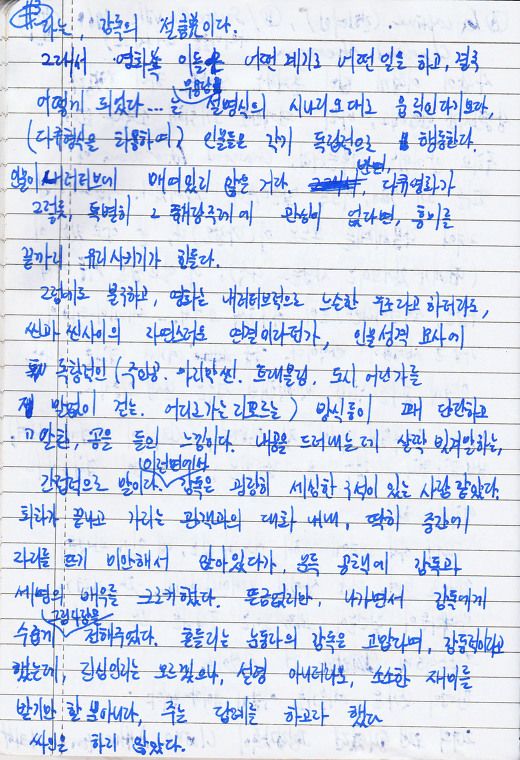 #3
다는, 감독의 설명이다.
그래서 영화속 이들은 어떤 계기로 어떤 일을 하고, 결국
어떻게 되었다...는 설명식의 시나리오대로 움직인다기보다,
(다큐형식을 차용하여) 인물들은 각기 독립적으로 행동한다.
인물이 내러티브에 매여있지 않은 거다. 반면, 다큐영화가
그렇듯, 특별히 그 해당주제에 관심이 없다면, 흥미를
끝까지 유지시키기가 힘들다.
그럼에도 불구하고, 영화는 내러티브적으로 느슨한 구조라고 하더라도,
씬과 씬사이의 자연스러운 연결이라던가, 인물성격 묘사에
독창적인 (주인공. 마지막씬. 트래블링. 도시 어딘가를
말없이 걷는. 어디로가는지모르는) 방식등이 꽤 단단하고
기발한, 공을 들인 느낌이다. 내공을 드러내는데 살짝 빗겨말하는,
간접적으로 말이다. 이런면에서 감독은 굉장히 세심한 구석이 있는 사람같았다.
퇴라가 끝나고 가지는 관객과의 대화 내내, 딱히 중간에
자리를 뜨기 미안해서 앉아있다가, 문득 공책에 감독과
세명의 배우를 크로키했다. 뜬금없지만, 나가면서 감독에게
수줍게 그림한장을 전해주었다. 흔들리는 눈동자의 감독은 고맙다며, 감동적이라고
했는데, 진심인지는 모르겠으나, 설령 아니더라도, 소소한 재미를
받기만 할 뿐아니라, 주는 답례를 하고자 했다
싸인을 하지 않았다.